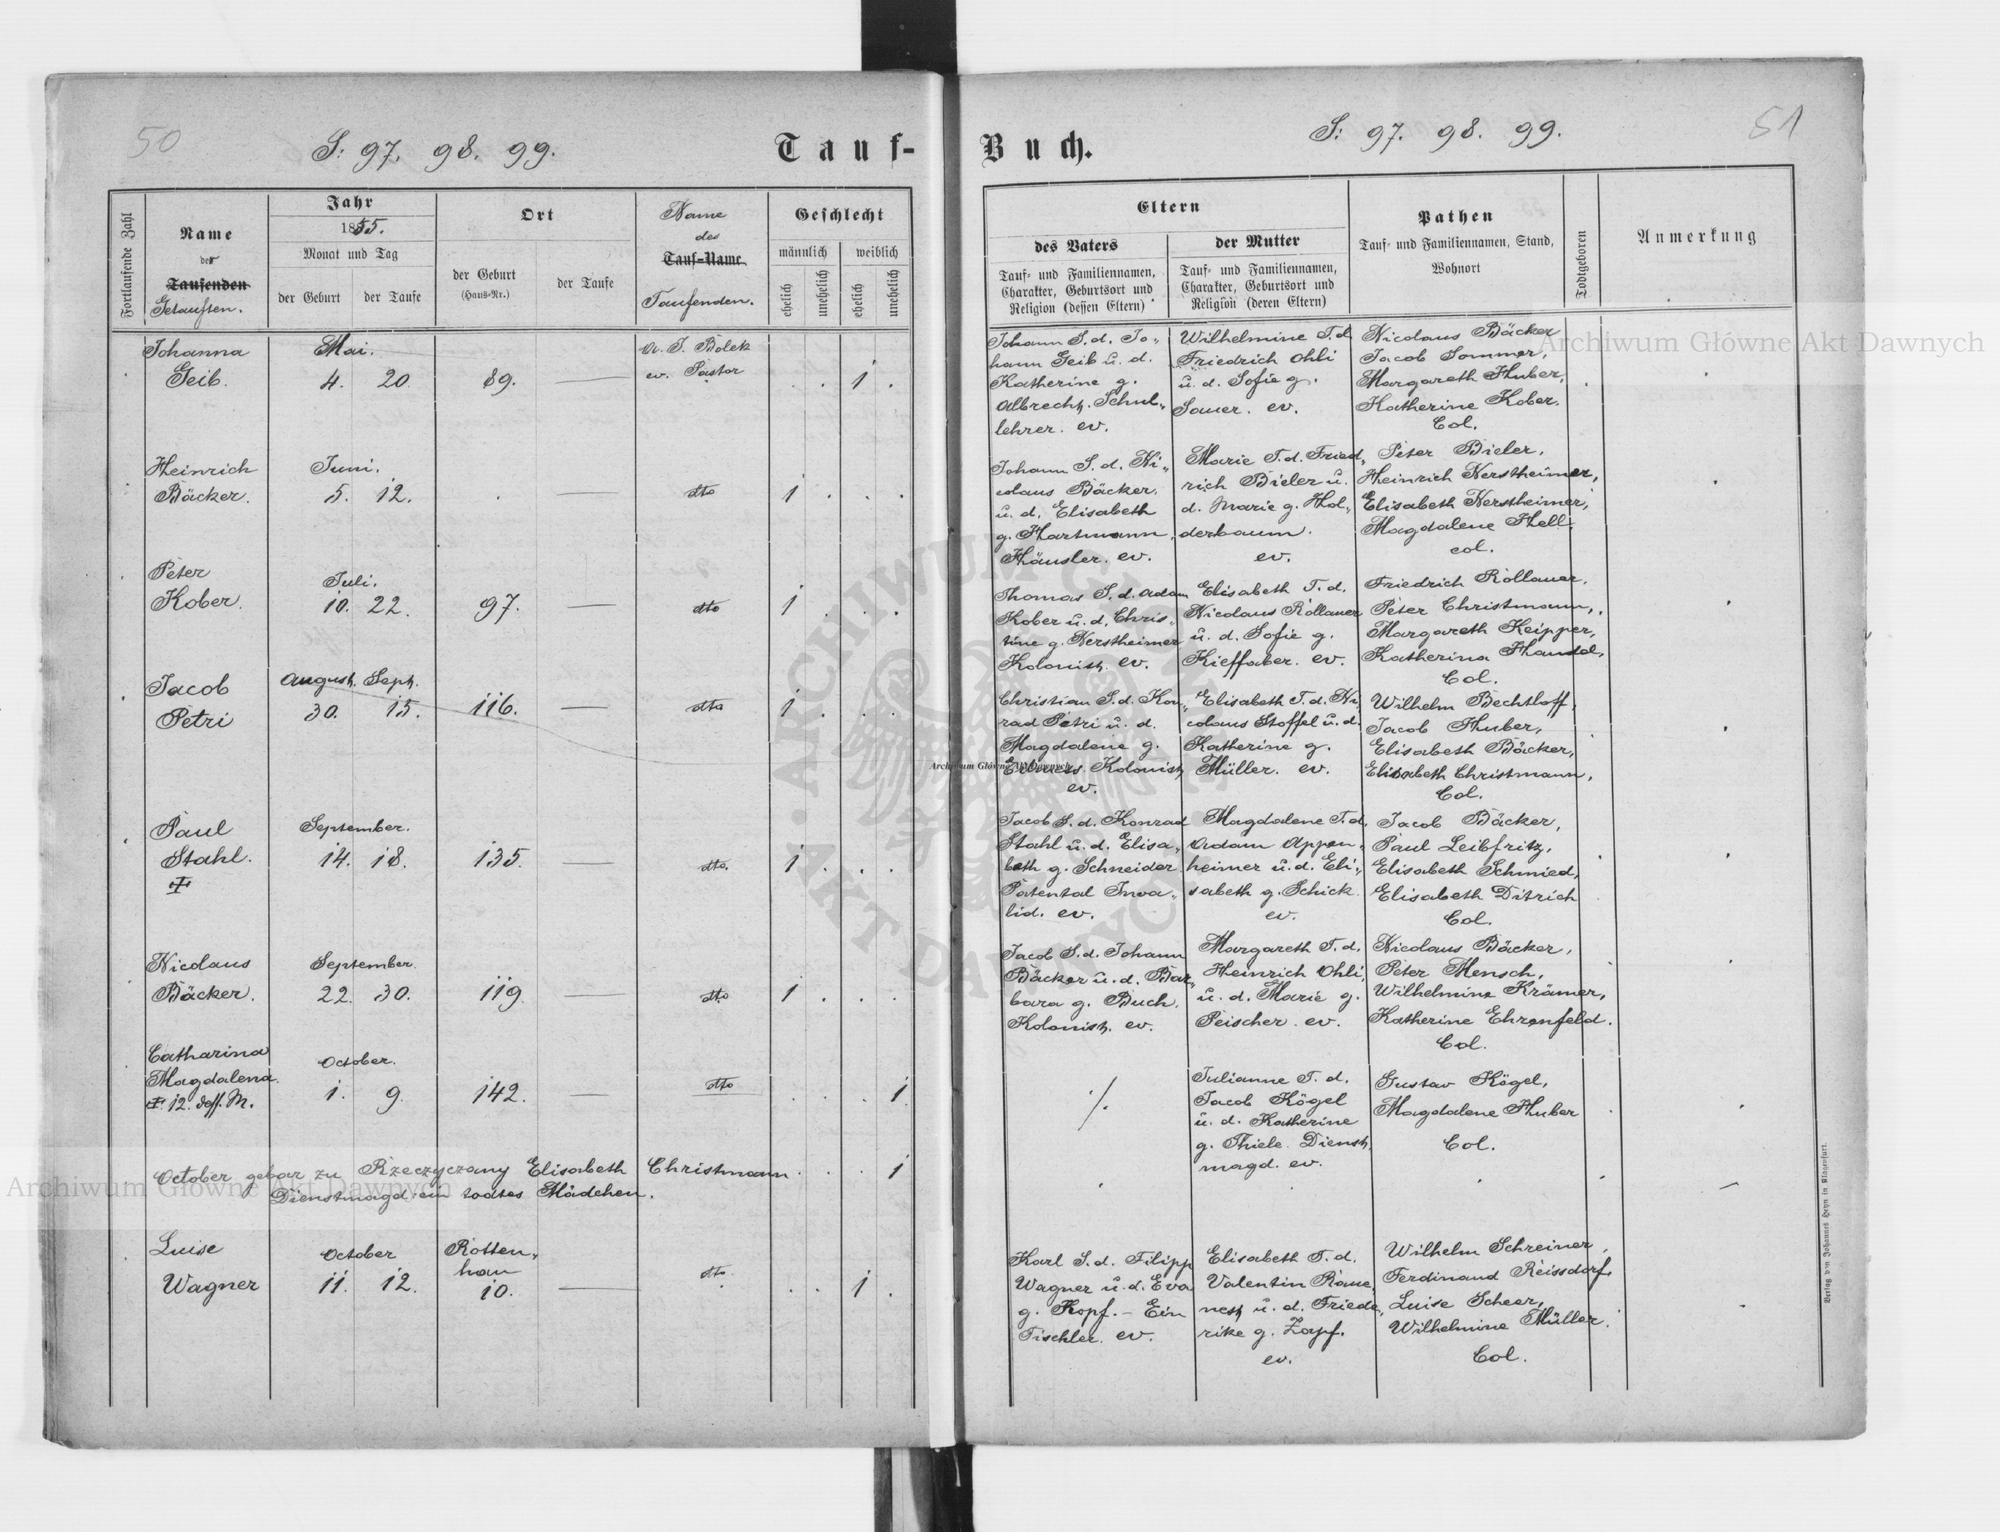 50
S: 97. 98. 99.
Tauf-
Fortlaufende Zahl
Name
des
Taufenden
Getauften.
Jahr
1855.
Monat und Tag
der Geburt
der Taufe
Ort
der Geburt
(Haus-Nr.)
der Taufe
Name
des
Tauf-Name
Taufenden.
Geschlecht
männlich
weiblich
ehelich
unehelich
ehelich
unehelich
Johanna
Geib.
Mai.
4. 20.
89.
J. Bolek
ev. Pastor
1
Heinrich
Bäcker.
Juni.
5. 12.
dto
1
Peter
Kober.
Juli.
10. 22.
97.
dto
1
Jacob
Petri
August. Sept.
30. 15.
116.
dto
1
Paul
Stahl.
September.
14. 18.
135.
dto.
1
Nicolaus
Bäcker.
September.
22. 30.
119
dto
1
Catharina
Magdalena.
12. M.
October.
1. 9.
142.
dto
1
October gebar zu Rzeczyczany Elisabeth Christmann.
Dienstmagd ein todtes Mädchen.
1
Luise
Wagner
October
11. 12.
Rotten-
han
10.
dto.
1
Buch.
S: 97. 98. 99.
51
Eltern
des Vaters
Tauf- und Familiennamen,
Charakter, Geburtsort und
Religion (dessen Eltern)
der Mutter
Tauf- und Familiennamen,
Charakter, Geburtsort und
Religion (deren Eltern)
Pathen
Tauf- und Familiennamen, Stand,
Wohnort
Todtgeboren
Anmerkung
Johann S. d. Jo-
hann Geib u. d.
Katherine g.
Albrecht. Schul-
lehrer. ev.
Wilhelmine T. d.
Friedrich Ohli
u. d. Sofie g.
Sauer. ev.
Nicolaus Bäcker
Jacob Sommer,
Margareth Huber,
Katherine Kober.
Col.
Johann S. d. Ni-
colaus Bäcker.
u. d. Elisabeth
g. Hartmann,
Häusler. ev.
Marie T. d. Fried-
rich Bieler u.
d. Marie g. Hol-
derbaum.
ev.
Peter Bieler,
Heinrich Kerstheimer,
Elisabeth Kerstheimer,
Magdalene Hell,
col.
Thomas S. d. Adam
Kober u. d. Chris-
tine g. Kerstheimer
Kolonist. ev.
Elisabeth T. d.
Nicolaus Rollauer
u. d. Sofie g.
Kieffaber. ev.
Friedrich Rollauer,
Peter Christmann,
Margareth Keipper,
Katherina
Col.
Christian S. d. Kon-
rad Petri u. d.
Magdalene g.
Kolonist,
ev.
Elisabeth T. d. Ni-
colaus Stoffel u. d.
Katherine g.
Müller. ev.
Wilhelm Bechtloff,
Jacob Huber,
Elisabeth Bäcker,
Elisabeth Christmann,
Col.
Jacob S. d. Konrad
Stahl u. d. Elisa-
beth g. Schneider.
Patental Inva-
lid. ev.
Magdalene T. d.
Adam Appen-
heimer u. d. Eli-
sabeth g. Schick
ev.
Jacob Bäcker,
Paul Leibfritz,
Elisabeth Schmied,
Elisabeth Ditrich
Col.
Jacob S. d. Johann
Bäcker u. d. Bar-
bara g. Buch.
Kolonist. ev.
Margareth T. d.
Heinrich Ohli,
u. d. Marie g.
Peischer. ev.
Nicolaus Bäcker,
Peter Mensch,
Wilhelmine Krämer,
Katherine Ehrenfeld.
Col.
./.
Julianne T. d.
Jacob Kögel
u. d. Katherine
g. Thiele. Dienst-
magd. ev.
Gustav Kögel,
Magdalene Huber
Col.
Karl S. d. Filipp
Wagner u. d. Eva
g. Kopf. - Ein
Tischler. ev.
Elisabeth T. d.
Valentin
u. d. Friede-
rike g. Zapf.
ev.
Wilhelm Schreiner,
Ferdinand Reissdorf,
Luise Scheer,
Wilhelmine Müller.
Col.
Verlag von Johannes Heyn in Klagenfurt.
Archiwum Główne Akt Dawnych
Archiwum Główne Akt Dawnych
Archiwum Główne Akt Dawnych
ARCHIWUM GŁÓWNE AKT DAWNYCH